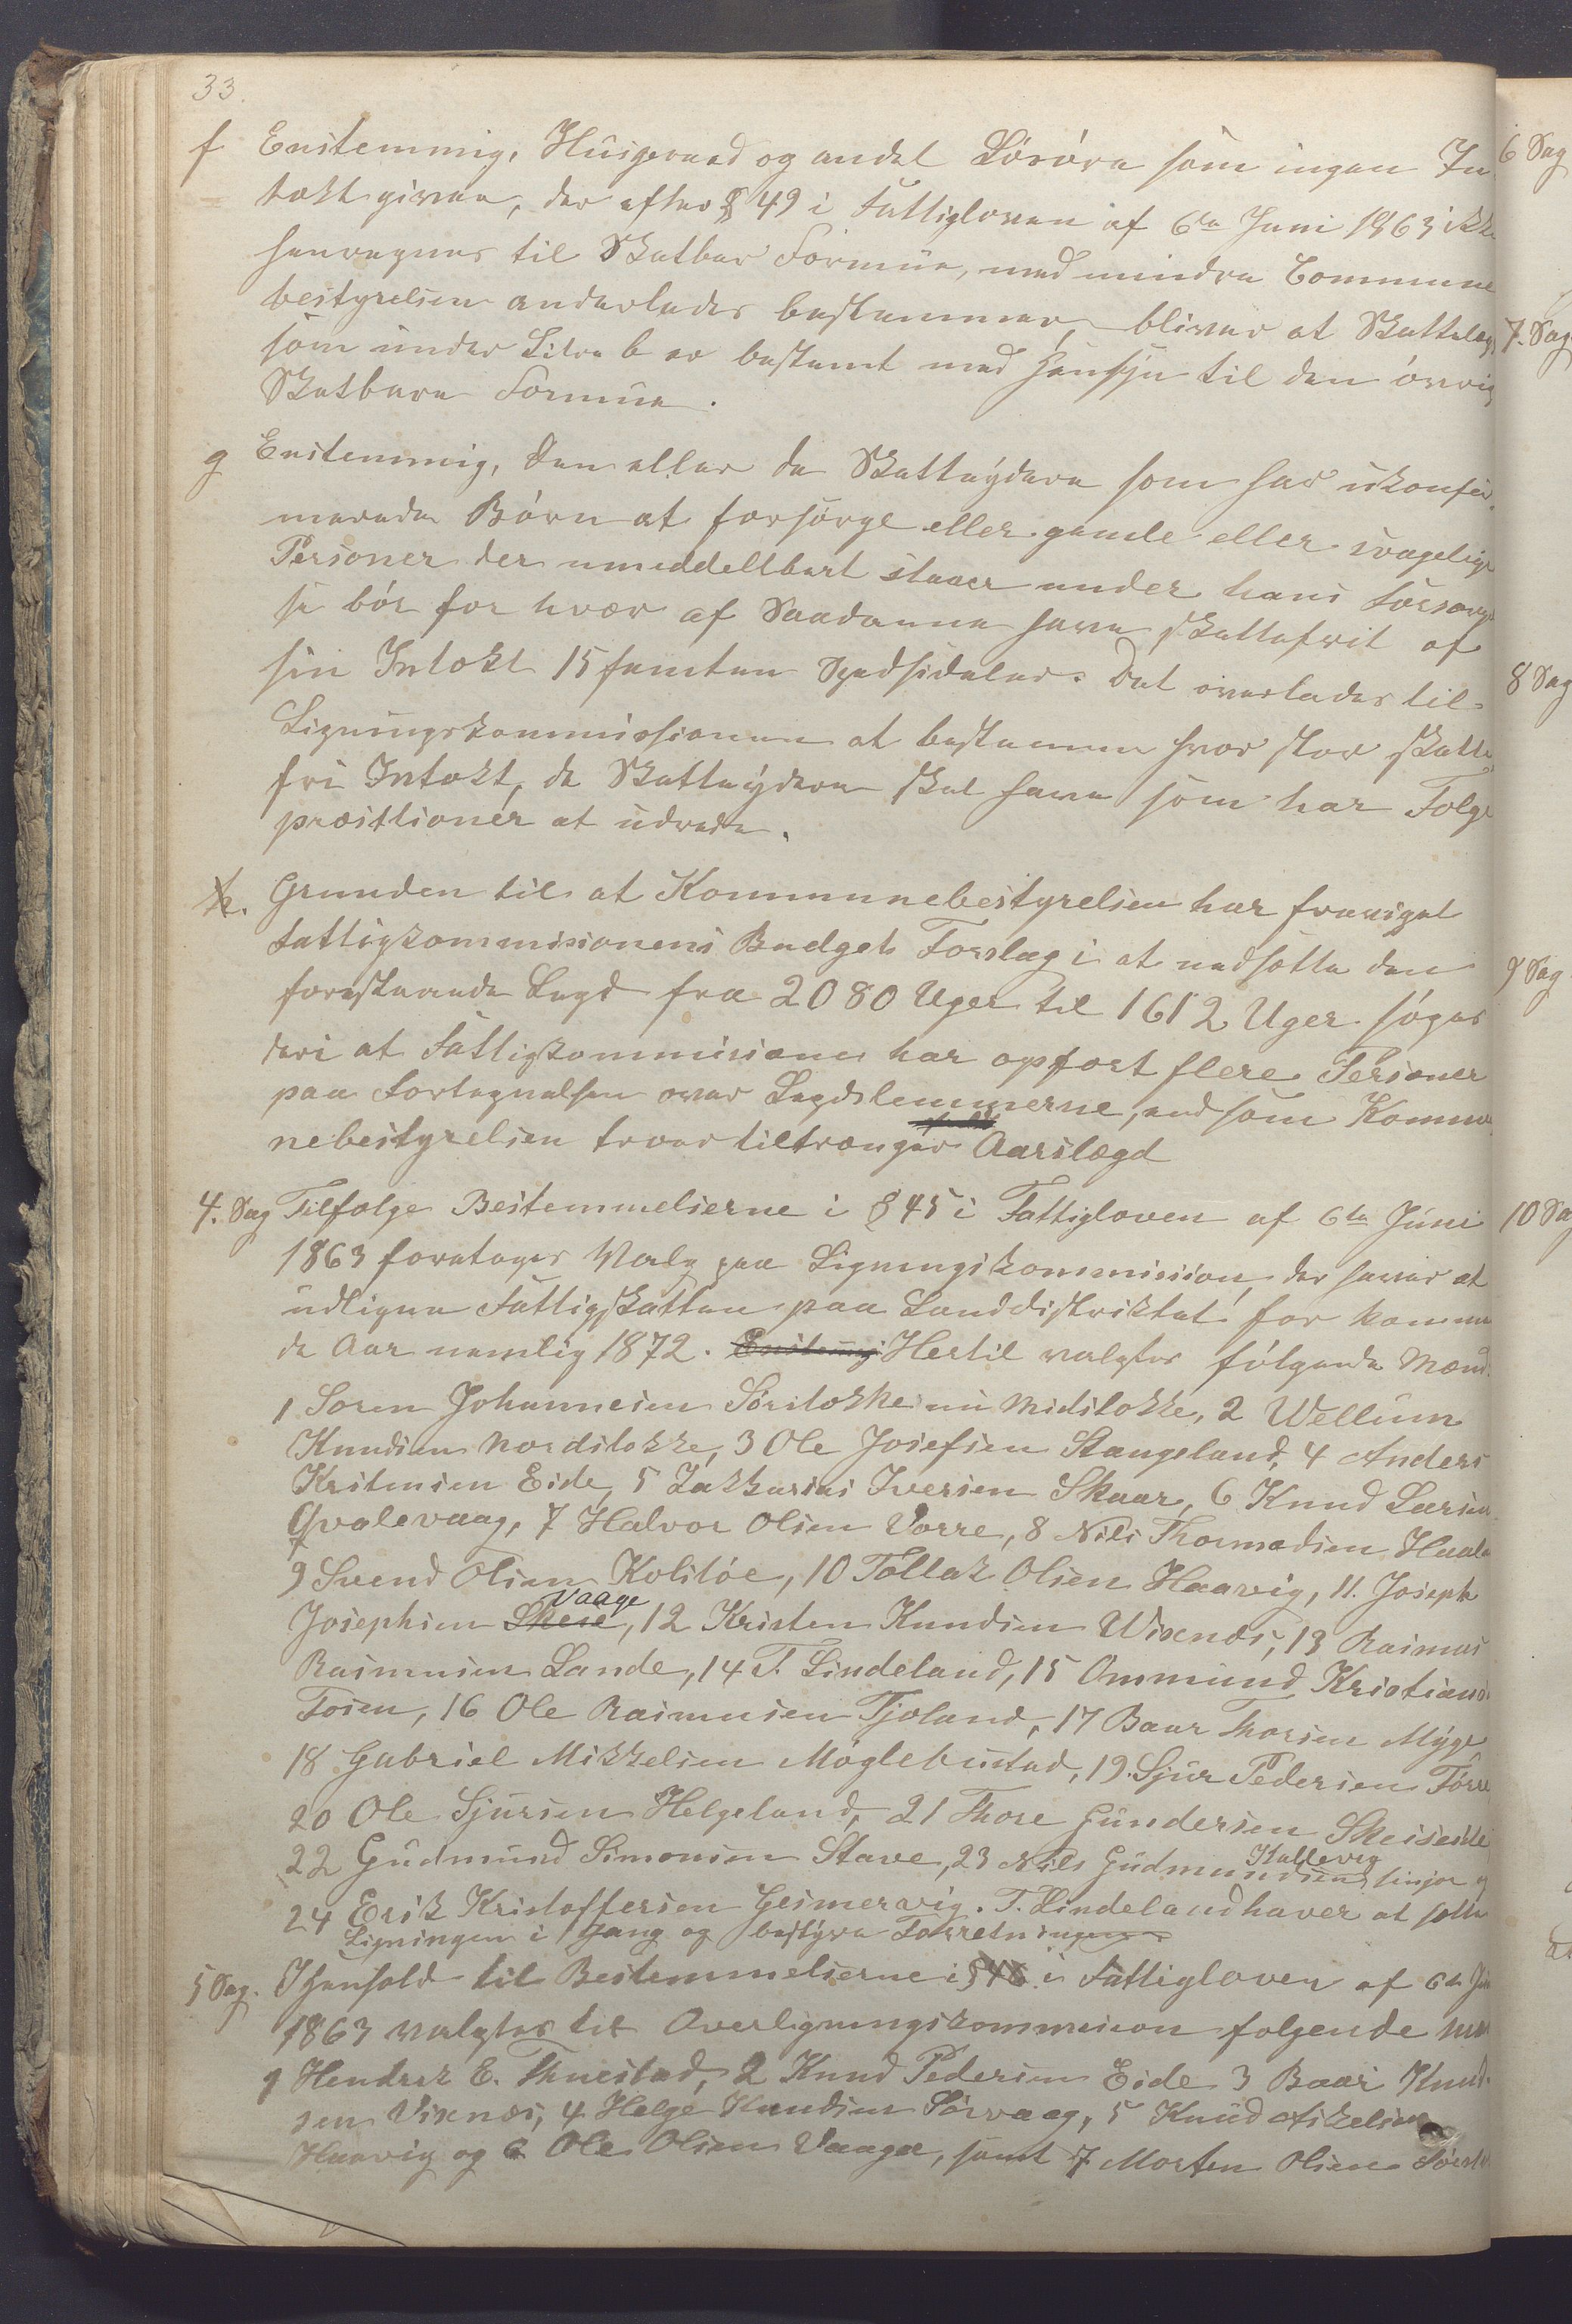 33.
f Enstemmig, Husgeraad og andet Lösöre som ingen In
tækt giver, der efter § 49 i Fattigloven af 6te Juni 1863 ikke
henregnes til Skatbar Formue, med mindre Commune
bestyrelsen anderledes bestemmer, bliver at Skattelægge
som under Litra b er bestemt med Hensyn til den övrig
Skatbare Formue.
g Enstemmig, Den eller de Skatteydere som har ukonfir-
merede Börn at forsörge eller gamle eller svagelige
Personer der umeddellbart staaer under hans Forsorge
se bör for hver af Saadanne have skattefrit af
sin Intækt 15 femten Spedsidaler. Det overlades til
Ligningskommissionen at bestemme hvor stor skatte
fri Intækt, de Skatteydere skal have som har Folge
præstlioner at udrede.
h. Grunden til at Kommunebestyrelsen har fraveget
Fattigkommisionens Budgets Forslag i at nedsætte den
forestaaende Lægd fra 2080 Uger til 1612 Uger söges
deri at Fattigkommisionen har opfort flere Personer
paa Fortegnelsen over Lægdslemmerne, end som Kommu-
nebestyrelsen troer tiltrænger Aarslægd
4. Sag Tilfolge Bestemmelserne i § 45 i Fattigloven af 6te Juni
1863 foretages Valg paa Ligningskommission, der haver at
udligne Fattigskatten paa Landdistriktet for komme
de Aar nemlig 1872. Enstemig Hertil valgtes fölgende Mænd.
1 Soren Johannesen Sörstokke nu Midstokke, 2 Wellum
Knudsen Nordstokke, 3 Ole Josefsen Stangeland, 4 Anders
Kristensen Eide, 5 Zakkarias Iversen Skaar, 6 Knud Larsen
Qvalevaag, 7 Halvor Olsen Vorre, 8 Nils Thormodsen Haaland
9 Svend Olsen Kolstöe, 10 Tollak Olsen Haavig, 11. Joseph
Josephsen Skeie Vaage, 12 Kristen Knudsen Wixnæs, 13 Rasmus
Rasmusen Lande, 14 T. Lindeland, 15 Ommund Kristians
Tosen, 16 Ole Rasmusen Tjoland, 17 Baar Thorsen Myge
18 Gabriel Mikkelsen Möglebustad, 19. Sjur Pedersen Förre
20 Ole Sjursen Helgeland, 21 Thore Gundersen Skeiseide
22 Gudmund Simonsen Stave, 23 Nils Gudmundsens Stallevig
24 Erik Kristoffersen Geimervig. T. Lindeland haver at sætte
Ligningen i Gang og bestyre Forretningen
5 Sag. I Henhold til Bestemmelserne i § 46 i Fattigloven af 6te Juni
1863 valgtes til Overligningskommision folgende
1 Hendrik E. Thuestad, 2 Knud Pedersen Eide 3 Baar Knud-
sen Vixnæs, 4 Helge Knudsen Sörvaag, 5 Knud Askelsen
Haavig og 6 Ole Olsen Vaage, samt 7 Morten Olsen
6 Sag
7. Sag
8 Sag
9 Sag
10 Sag